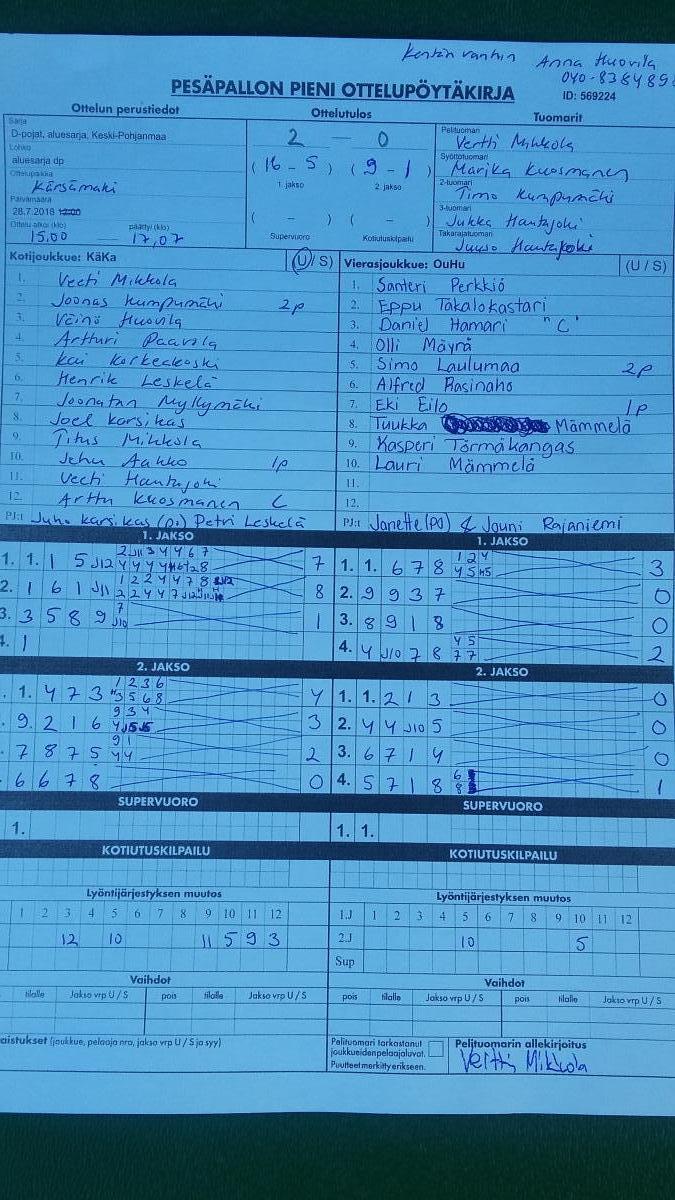 Kentän vanhin Anna Huovila
PESÄPALLON PIENI OTTELUPÖYTÄKIRJA
ID: 569224
Ottelun perustiedot
Sarja
D-pojat, aluesarja, Keski-Pohjanmaa
Lohko
aluesarja dp
Ottelupaikka
Kärsämäki
Päivämäärä
28.7.2018 12:00
Ottelu alkoi (klo) päättyi (klo)
15.00 17,07
Ottelutulos
2 – 0
(16 – 5) (9 – 1)
1. jakso 2. jakso
( – ) ( – )
Supervuoro Kotiutuskilpailu
Tuomarit
Pelituomari
Vertti Mikkola
Syöttötuomari
Marika Kuosmanen
2-tuomari
Timo Kumpumäki
3-tuomari
Jukka Hautajoki
Takarajatuomari
Juuso Hautajoki
Kotijoukkue: KäKa (U/S)
1. Veeti Mikkola
2. Joonas Kumpumäki 2p
3. Väinö Huovila
4. Artturi Paavola
5. Kai Korkeakoski
6. Henrik Leskelä
7. Joonatan Myllymäki
8. Joel Karsikas
9. Titus Mikkola
10. Juhu Aakko 1p
11. Veeti Hautajoki
12. Arttu Kuosmanen C
PJ:t Juho Karsikas (pj) Petri Leskelä
Vierasjoukkue: OuHu (U/S)
1. Santeri Perkkiö
2. Eppu Takalokastari
3. Daniel Hamari "C"
4. Olli Mäyrä
5. Simo Laulumaa 2p
6. Alfred Rasinaho
7. Eki Eilo 1p
8. Tuukka Mämmelä
9. Kasperi Törmäkangas
10. Lauri Mämmelä
11.
12.
PJ:t Janette (PJ) & Jouni Rajaniemi
1. JAKSO
1. 1. 1 5 J12 7
2. 1 6 1 J11 8
3. 3 5 8 9 1
4. 1
1. JAKSO
1. 1. 6 7 8 3
2. 9 9 3 7 0
3. 8 9 1 8 0
4. 4 J10 7 8 2
2. JAKSO
1. 4 7 3 4
9 2 1 6 3
7 8 7 5 2
6 6 7 8 0
2. JAKSO
1. 1. 2 1 3 0
2. 4 4 J10 5 0
3. 6 7 1 4 0
4. 5 7 1 8 1
SUPERVUORO
1.
SUPERVUORO
1. 1.
KOTIUTUSKILPAILU
KOTIUTUSKILPAILU
Lyöntijärjestyksen muutos
1 2 3 4 5 6 7 8 9 10 11 12
12 10 11 5 9 3
Lyöntijärjestyksen muutos
1.J 1 2 3 4 5 6 7 8 9 10 11 12
2.J 10 5
Sup
Vaihdot
tilalle Jakso vrp U / S pois tilalle Jakso vrp U / S
Vaihdot
pois tilalle Jakso vrp U / S pois tilalle Jakso vrp U / S
aistukset (joukkue, pelaaja nro, jakso vrp U / S ja syy)
Pelituomari tarkastanut
joukkueiden pelaajaluvat.
Puutteet merkitty erikseen.
Pelituomarin allekirjoitus
Vertti Mikkola